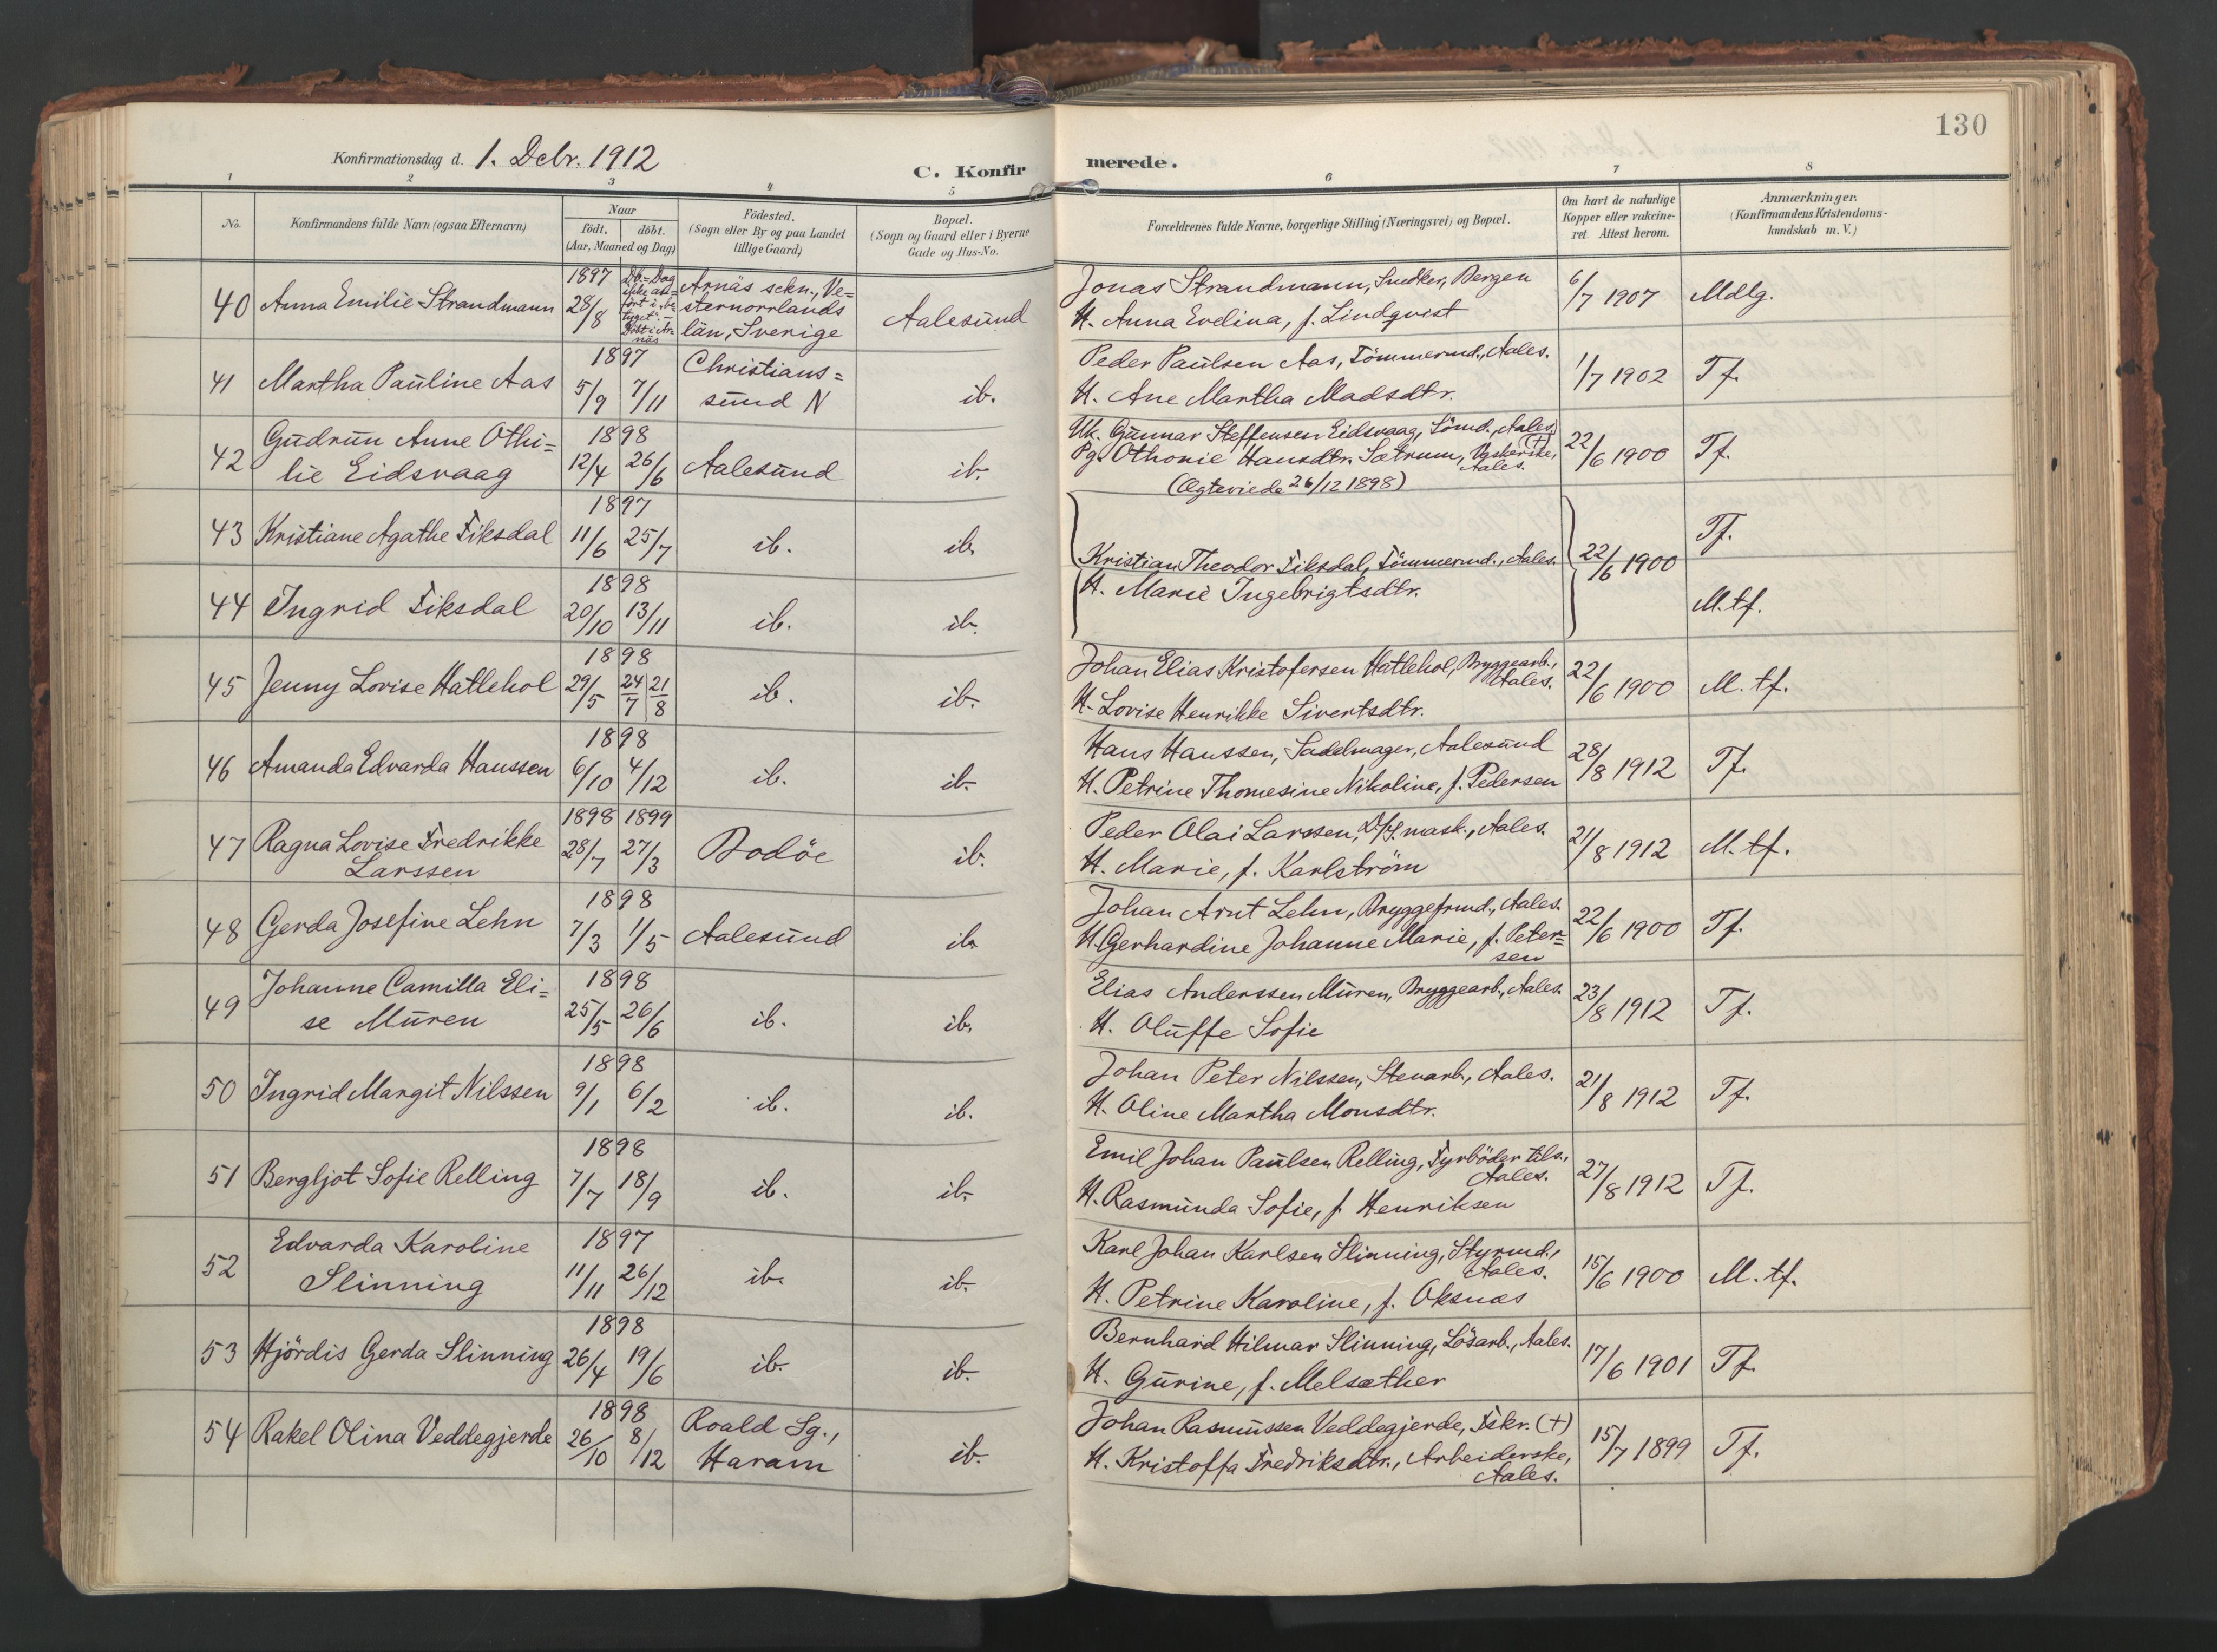 130
Konfirmationsdag d. 1. Debr. 1912
C. Konfirmerede.
1 2 3 4 5 6 7 8
No.
Konfirmandens fulde Navn (ogsaa Efternavn)
Naar
födt. döbt.
(Aar, Maaned og Dag)
Födested.
(Sogn eller By og paa Landet
tillige Gaard)
Bopæl.
(Sogn og Gaard eller i Byerne
Gade og Hus-No.
Forældrenes fulde Navne, borgerlige Stilling (Næringsvei) og Bopæl.
Om havt de naturlige
Kopper eller vakcine-
ret. Attest herom.
Anmærkninger.
(Konfirmandens Kristendoms-
kundskab m. V.)
40 Anna Emilie Strandmann
1897
28/8
Arnäs sckn., Ve=
sternorrlands
län, Sverige
Aalesund
Jonas Strandmann, Snedker, Bergen
H. Anna Evelina, f. Lindqvist
6/7 1907 Mdlg.
41 Martha Pauline Aas
1897
5/9 7/11
Christians=
sund N
ib.
Peder Paulsen Aas, Tömmermd., Aales.
H. Ane Martha Madsdtr.
1/7 1902 Tf.
42 Gudrun Anne Othi=
lie Eidsvaag
1898
12/4 26/6
Aalesund
ib.
Uk. Gunnar Steffensen Eidsvaag, Sömd., Aales. (+)
Pg. Othonie Hansdtr. Sætrum, Vaskerske,
Aales.
(Ægteviede 26/12 1898)
22/6 1900 Tf.
43 Kristiane Agathe Fiksdal
1897
11/6 25/7
ib. ib.
Tf.
Kristian Theodor Fiksdal, Tömmermd., Aales.
H. Marie Ingebrigtsdtr.
22/6 1900
44 Ingrid Fiksdal
1898
20/10 13/11
ib. ib.
M. tf.
45 Jenny Lovise Hatlehol
1898
29/5 24/7 21/8
ib. ib.
Johan Elias Kristofersen Hatlehol, Bryggearb.,
Aales.
H. Lovise Henrikke Sivertsdtr.
22/6 1900 M. tf.
46 Amanda Edvarda Hanssen
1898
6/10 4/12
ib. ib.
Hans Hanssen, Sadelmager, Aalesund
H. Petrine Thomesine Nikoline, f. Pedersen
28/8 1912 Tf.
47 Ragna Lovise Fredrikke
Larssen
1898 1899
28/7 27/3
Bodöe
ib.
Peder Olai Larssen, D/S. mask., Aales.
H. Marie, f. Karlström
21/8 1912 M. tf.
48 Gerda Josefine Lehn
1898
7/3 1/5
Aalesund
ib.
Johan Arnt Lehn, Bryggefrmd., Aales.
H. Gerhardine Johanne Marie, f. Peter=
sen
22/6 1900 Tf.
49 Johanne Camilla Eli=
se Muren
1898
25/5 26/6
ib. ib.
Elias Anderssen Muren, Bryggearb., Aales.
H. Oluffe Sofie
23/8 1912 Tf.
50 Ingrid Margit Nilssen
1898
9/1 6/2
ib. ib.
Johan Peter Nilssen, Stenarb., Aales.
H. Oline Martha Monsdtr.
21/8 1912 Tf.
51 Bergljot Sofie Relling
1898
7/7 18/9
ib. ib.
Emil Johan Paulsen Relling, Fyrböder tils.,
Aales.
H. Rasmunda Sofie, f. Henriksen
27/8 1912 Tf.
52 Edvarda Karoline
Slinning
1897
11/11 26/12
ib. ib.
Karl Johan Karlsen Slinning, Styrmd.,
Aales.
H. Petrine Karoline, f. Oksnæs
15/6 1900 M. tf.
53 Hjördis Gerda Slinning
1898
26/4 19/6
ib. ib.
Bernhard Hilmar Slinning, Lösarb., Aales.
H. Gurine, f. Melsæther
17/6 1901 Tf.
54 Rakel Olina Veddegjerde
1898
26/10 8/12
Roald Sg.,
Haram
ib.
Johan Rasmussen Veddegjerde, Fskr. (+)
H. Kristoffa Fredriksdtr., Arbeiderske,
Aales.
15/7 1899 Tf.